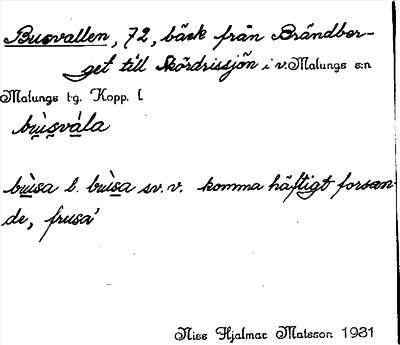 Busvallen, 72, bäck från Brändber-
get till Skördrissjön i v. Malungs s:n
Malungs t-g. Kopp. l.
bùi̯svála
bùi̯sa l. bùi̯sa sv. v. komma häftigt forsan-
de, 'frusa'
Niss Hjalmar Matsson 1931